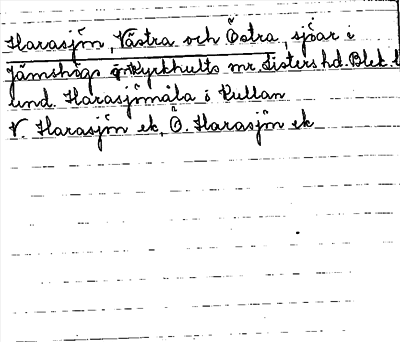 Harasjön, Västra och Östra, sjöar i
Jämshögs o. Kyrkhults snr, Listers hd. Blek. l
und. Harasjömåla i Kullan
V. Harasjön ek, Ö. Harasjön ek